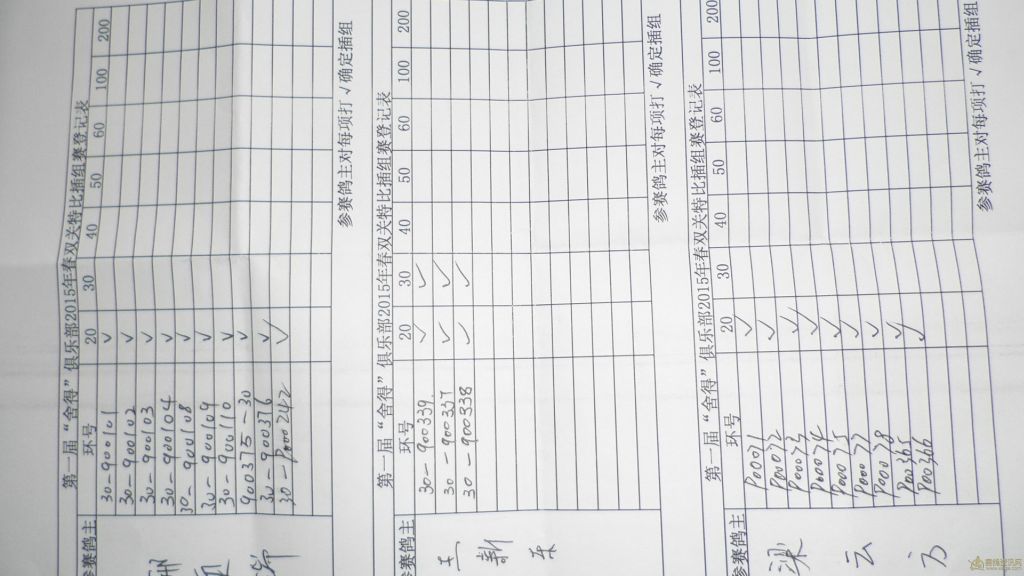 第一届“舍得”俱乐部2015年春双关特比插组赛登记表
参赛鸽主 环号 20 30 40 50 60 100 200
30-900101 √
30-900102 √
30-900103 √
30-900104 √
30-900108 √
30-900109 √
30-900110 √
900375-30 √
30-900376 √
30-P000242 √
参赛鸽主对每项打√确定插组
第一届“舍得”俱乐部2015年春双关特比插组赛登记表
参赛鸽主 环号 20 30 40 50 60 100 200
30-900339 √ √
30-900337 √ √
30-900338 √ √
新东
参赛鸽主对每项打√确定插组
第一届“舍得”俱乐部2015年春双关特比插组赛登记表
参赛鸽主 环号 20 30 40 50 60 100 200
P00071 √
P00072 √
P00073 √
P00074 √
P00075 √
P00077 √
P00078 √
P00365 √
P00366 √
梁云方
参赛鸽主对每项打√确定插组